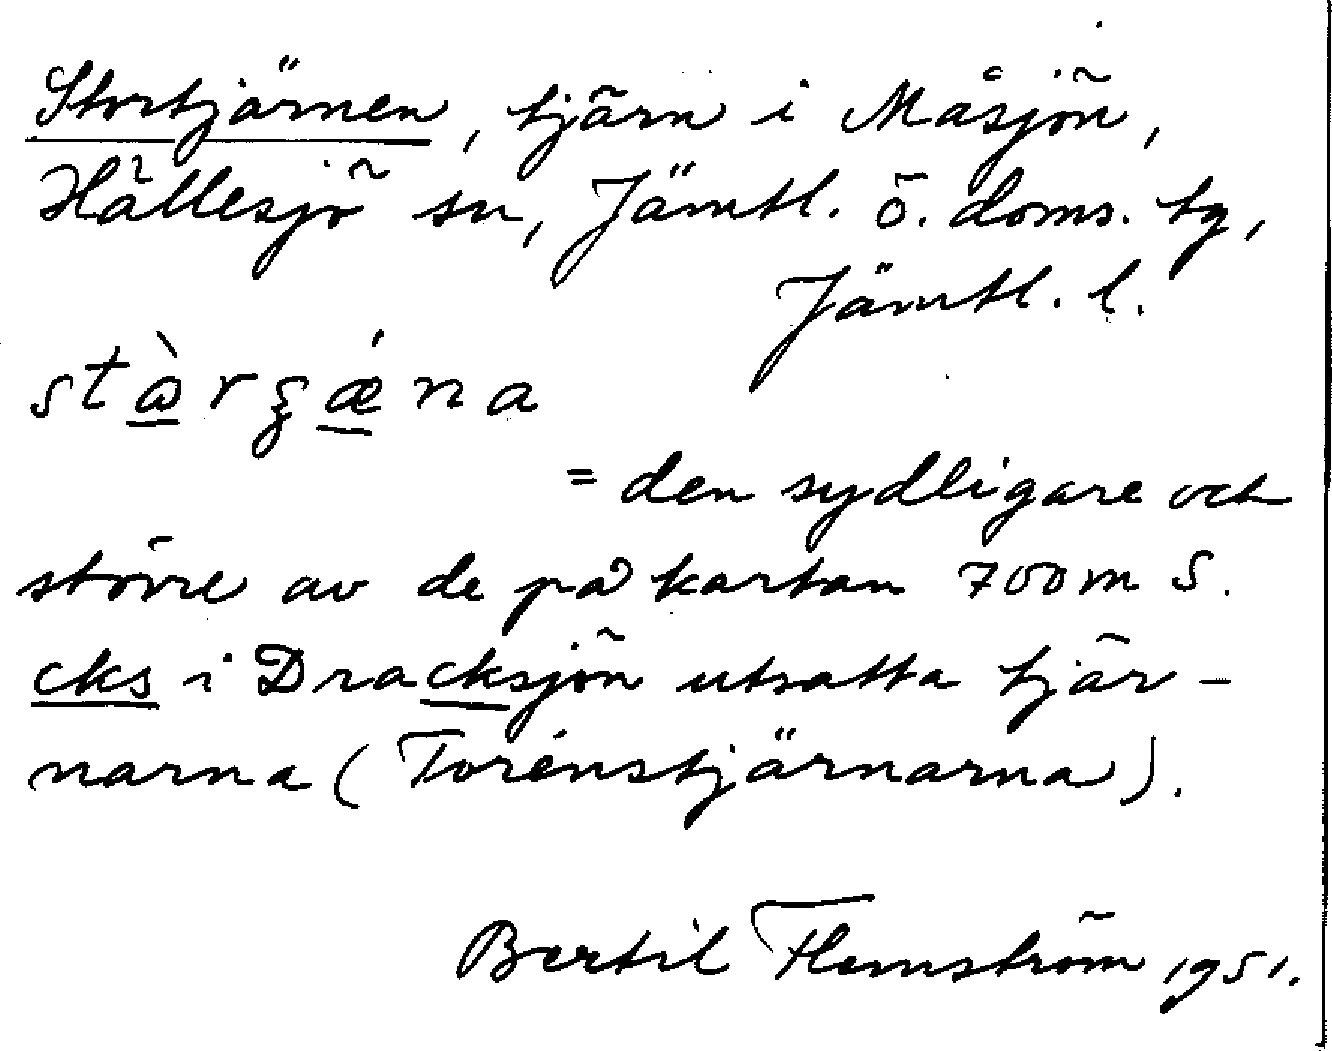 Stortjärnen, tjärn i Måsjön,
Hällesjö sn, Jämtl. ö. doms. tg,
Jämtl. l.
= den sydligare och
större av de på kartan 700 m S.
cks i Dracksjön utsatta tjär-
narna (Torénstjärnarna).
Bertil Flemström 1951.